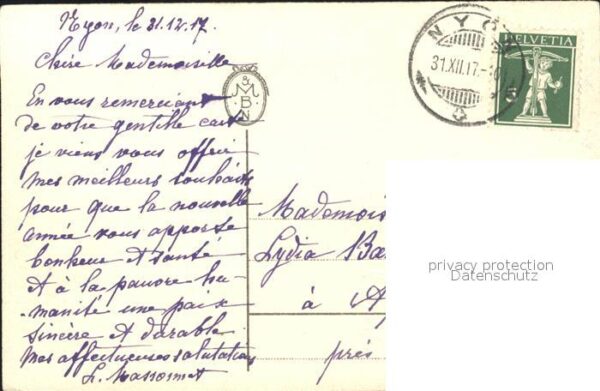 Nyon, le 31.12.17.
Chère Mademoiselle
En vous remerciant
de votre gentille carte
je viens vous offrir
mes meilleurs souhaits
pour que la nouvelle
année vous apporte
bonheur et santé
et à la pauvre hu-
manité une paix
sincère et durable.
Mes affectueuses salutations
&
M
B
N
NYON
31.XII.17.-
HELVETIA
Mademois
Lydia
à
près
privacy protection
Datenschutz